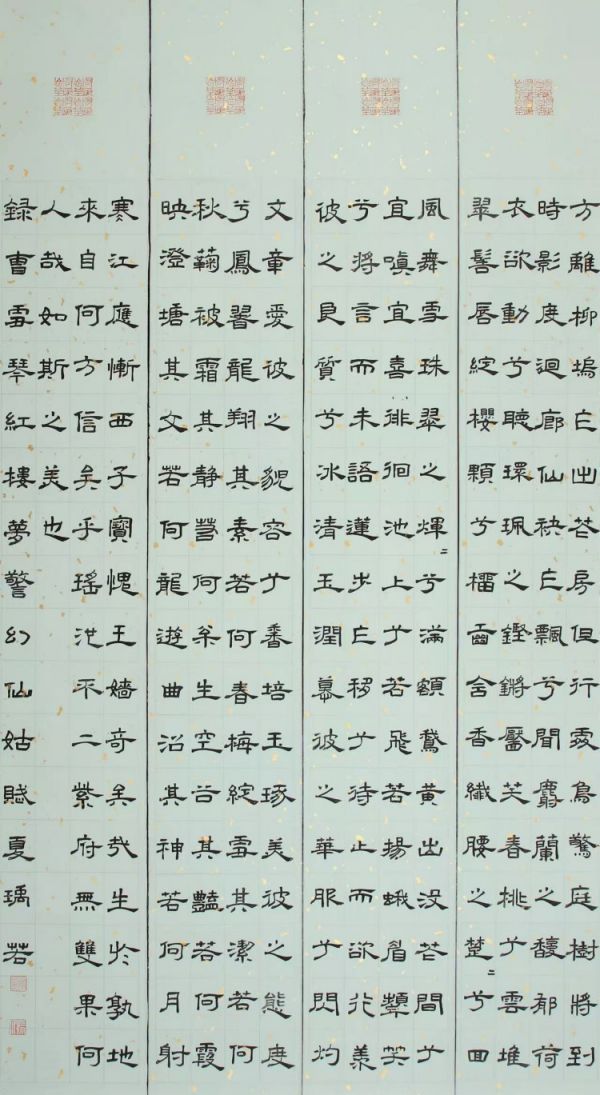 方離柳塢乍出花房但行處鳥驚庭樹將到
時影度迴廊仙袂乍飄兮聞麝蘭之馥郁荷
衣欲動兮聽環珮之鏗鏘靨笑春桃兮雲堆
翠髻唇綻櫻顆兮榴齒含香纖腰之楚〻兮回
風舞雪珠翠之煇〻兮滿額鵞黃出沒花間兮
宜嗔宜喜徘徊池上兮若飛若揚蛾眉顰笑
兮將言而未語蓮步乍移兮待止而欲行羨
彼之良質兮冰清玉潤慕彼之華服兮閃灼
文章愛彼之貌容兮香培玉琢美彼之態度
兮鳳翥龍翔其素若何春梅綻雪其潔若何
秋蘜被霜其静若何松生空谷其豔若何霞
映澄塘其文若何龍遊曲沼其神若何月射
寒江應慚西子實愧王嬙奇矣哉生於孰地
來自何方信矣乎瑤池不二紫府無雙果何
人哉如斯之美也
録曹雪琴紅樓夢警幻仙姑賦夏瑀若